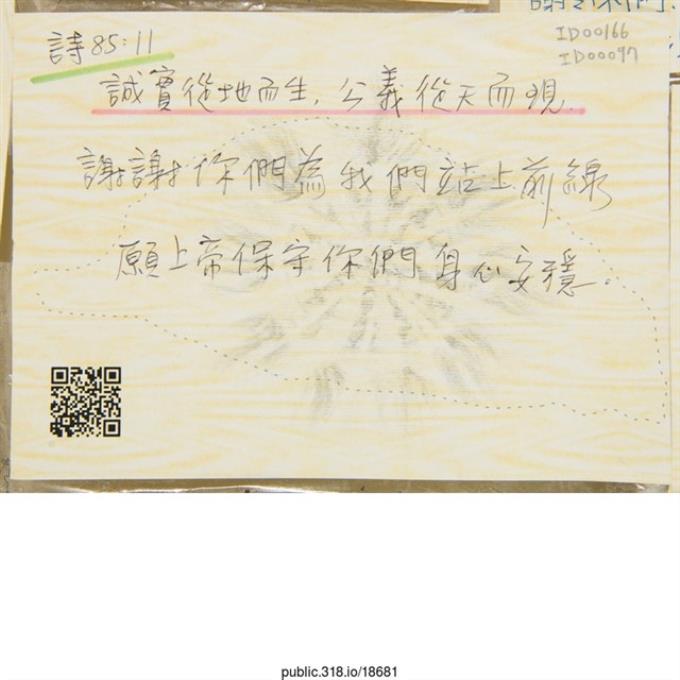 謝謝你們
ID00166
ID00097
詩85:11
誠實從地而生，公義從天而現.
謝謝你們為我們站上前線
願上帝保守你們身心安穩.
public.318.io/18681